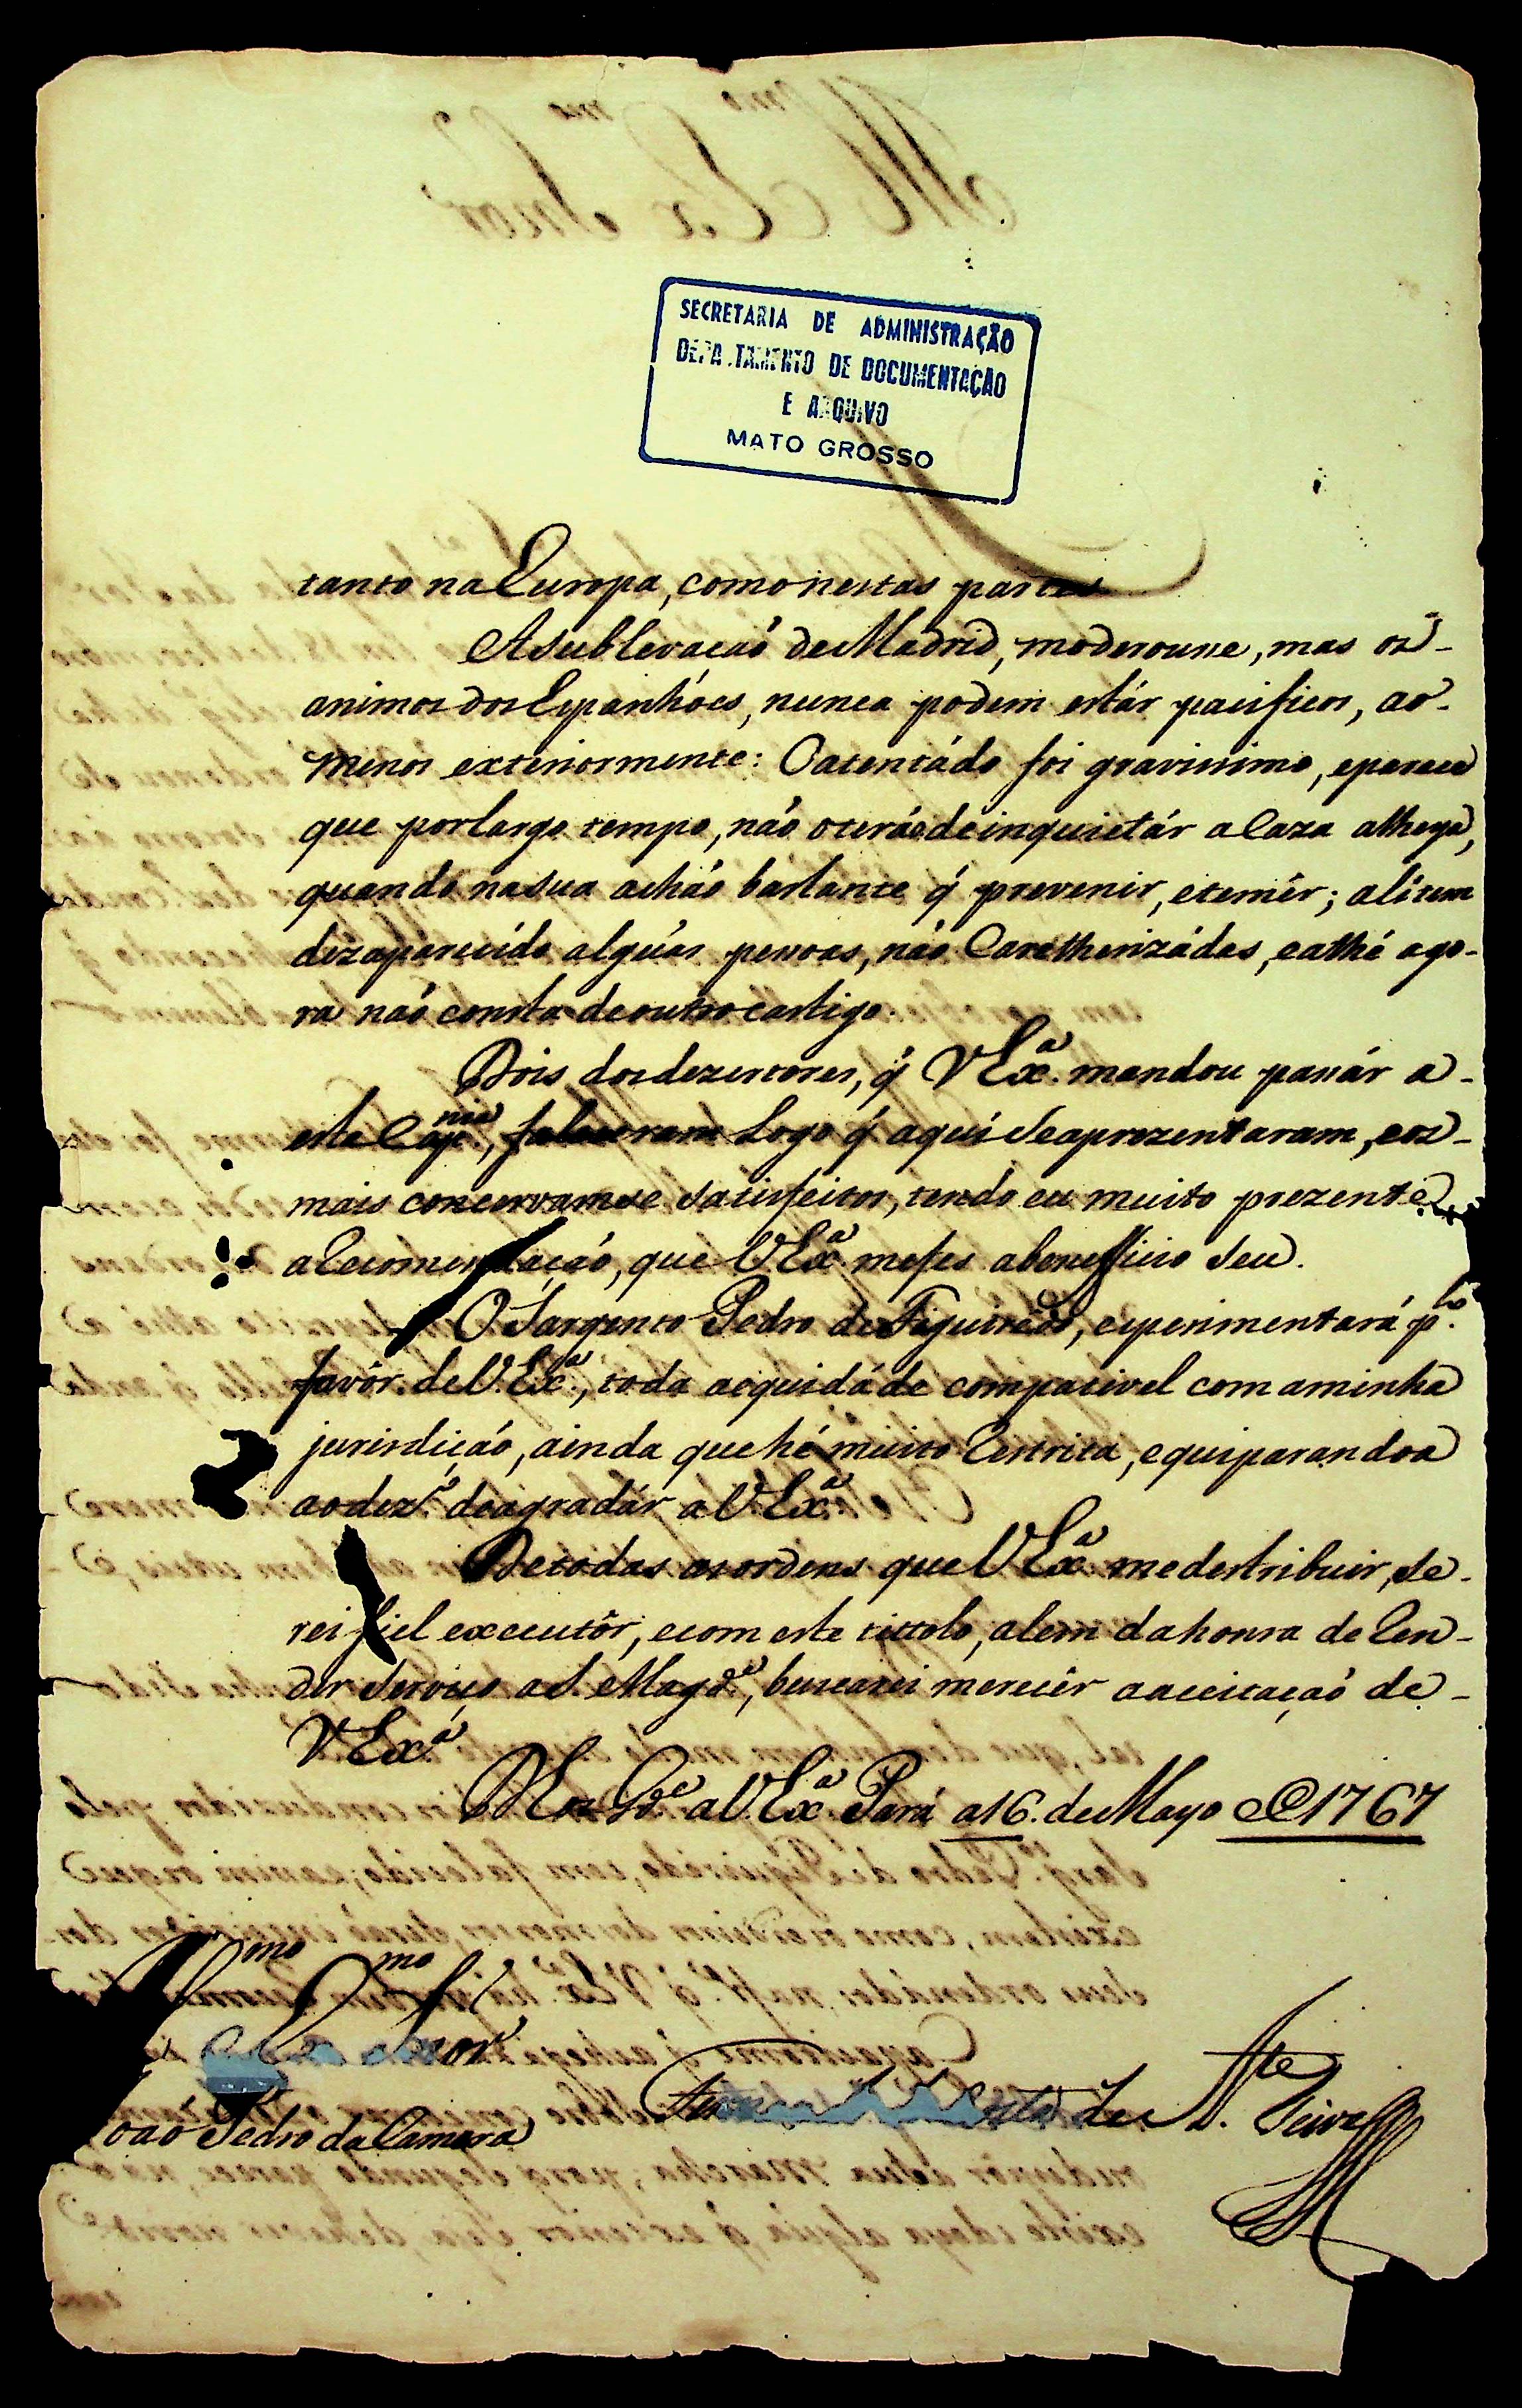 SECRETARIA DE ADMINISTRAÇÃO
DEPARTAMENTO DE DOCUMENTAÇÃO
E ARQUIVO
MATO GROSSO
tanto na Europa, como nestas partes
A sublevaçaõ de Madrid, moderousse, mas os
animos dos Espanhóes, nunca podem estár pacificos, ao
menos exteriormente: O atentádo foi gravissimo, eparece
que por largo tempo, náo oteráõ de inquietár a Caza alheya,
quando na sua acháo bastante q̃ prevenir, etemêr; ali tem
dizaparecido algúas pessoas, náo Caratherizádas, eathé ago-
ra naó consta de outro castigo.
Dois dos dezertores, q̃ V Exª. mandou passár a
esta Capnia, faleceram Logo q̃ aqui Se aprezentaram, eos
mais concervamse Satisfeitos, tendo eu muito prezente
a Recomendaçáo, que V Exª. me fes abeneficio Seu.
O Sargento Pedro de Figueirêdo, experimentará plo
favôr de V. Exª., toda aequidáde compativel com aminha
jurisdiçáo, ainda que hé muito Restrita, equiparandoa
ao dezº. de agradár a V. Exª.
De todas as ordens que V Exª. me destribuir, Se-
rei fiel executôr, ecom este tittolo, alem da honra de Ren-
der Serviço a S. Magde., buscarei merecêr aaceitaçaó de
V. Exª.
Ds. Gde. a V. Exª. Pará a 16. de Mayo de 1767
Illmo Exmo Snor
Joaó Pedro da Camera
Costa de Atde Teive